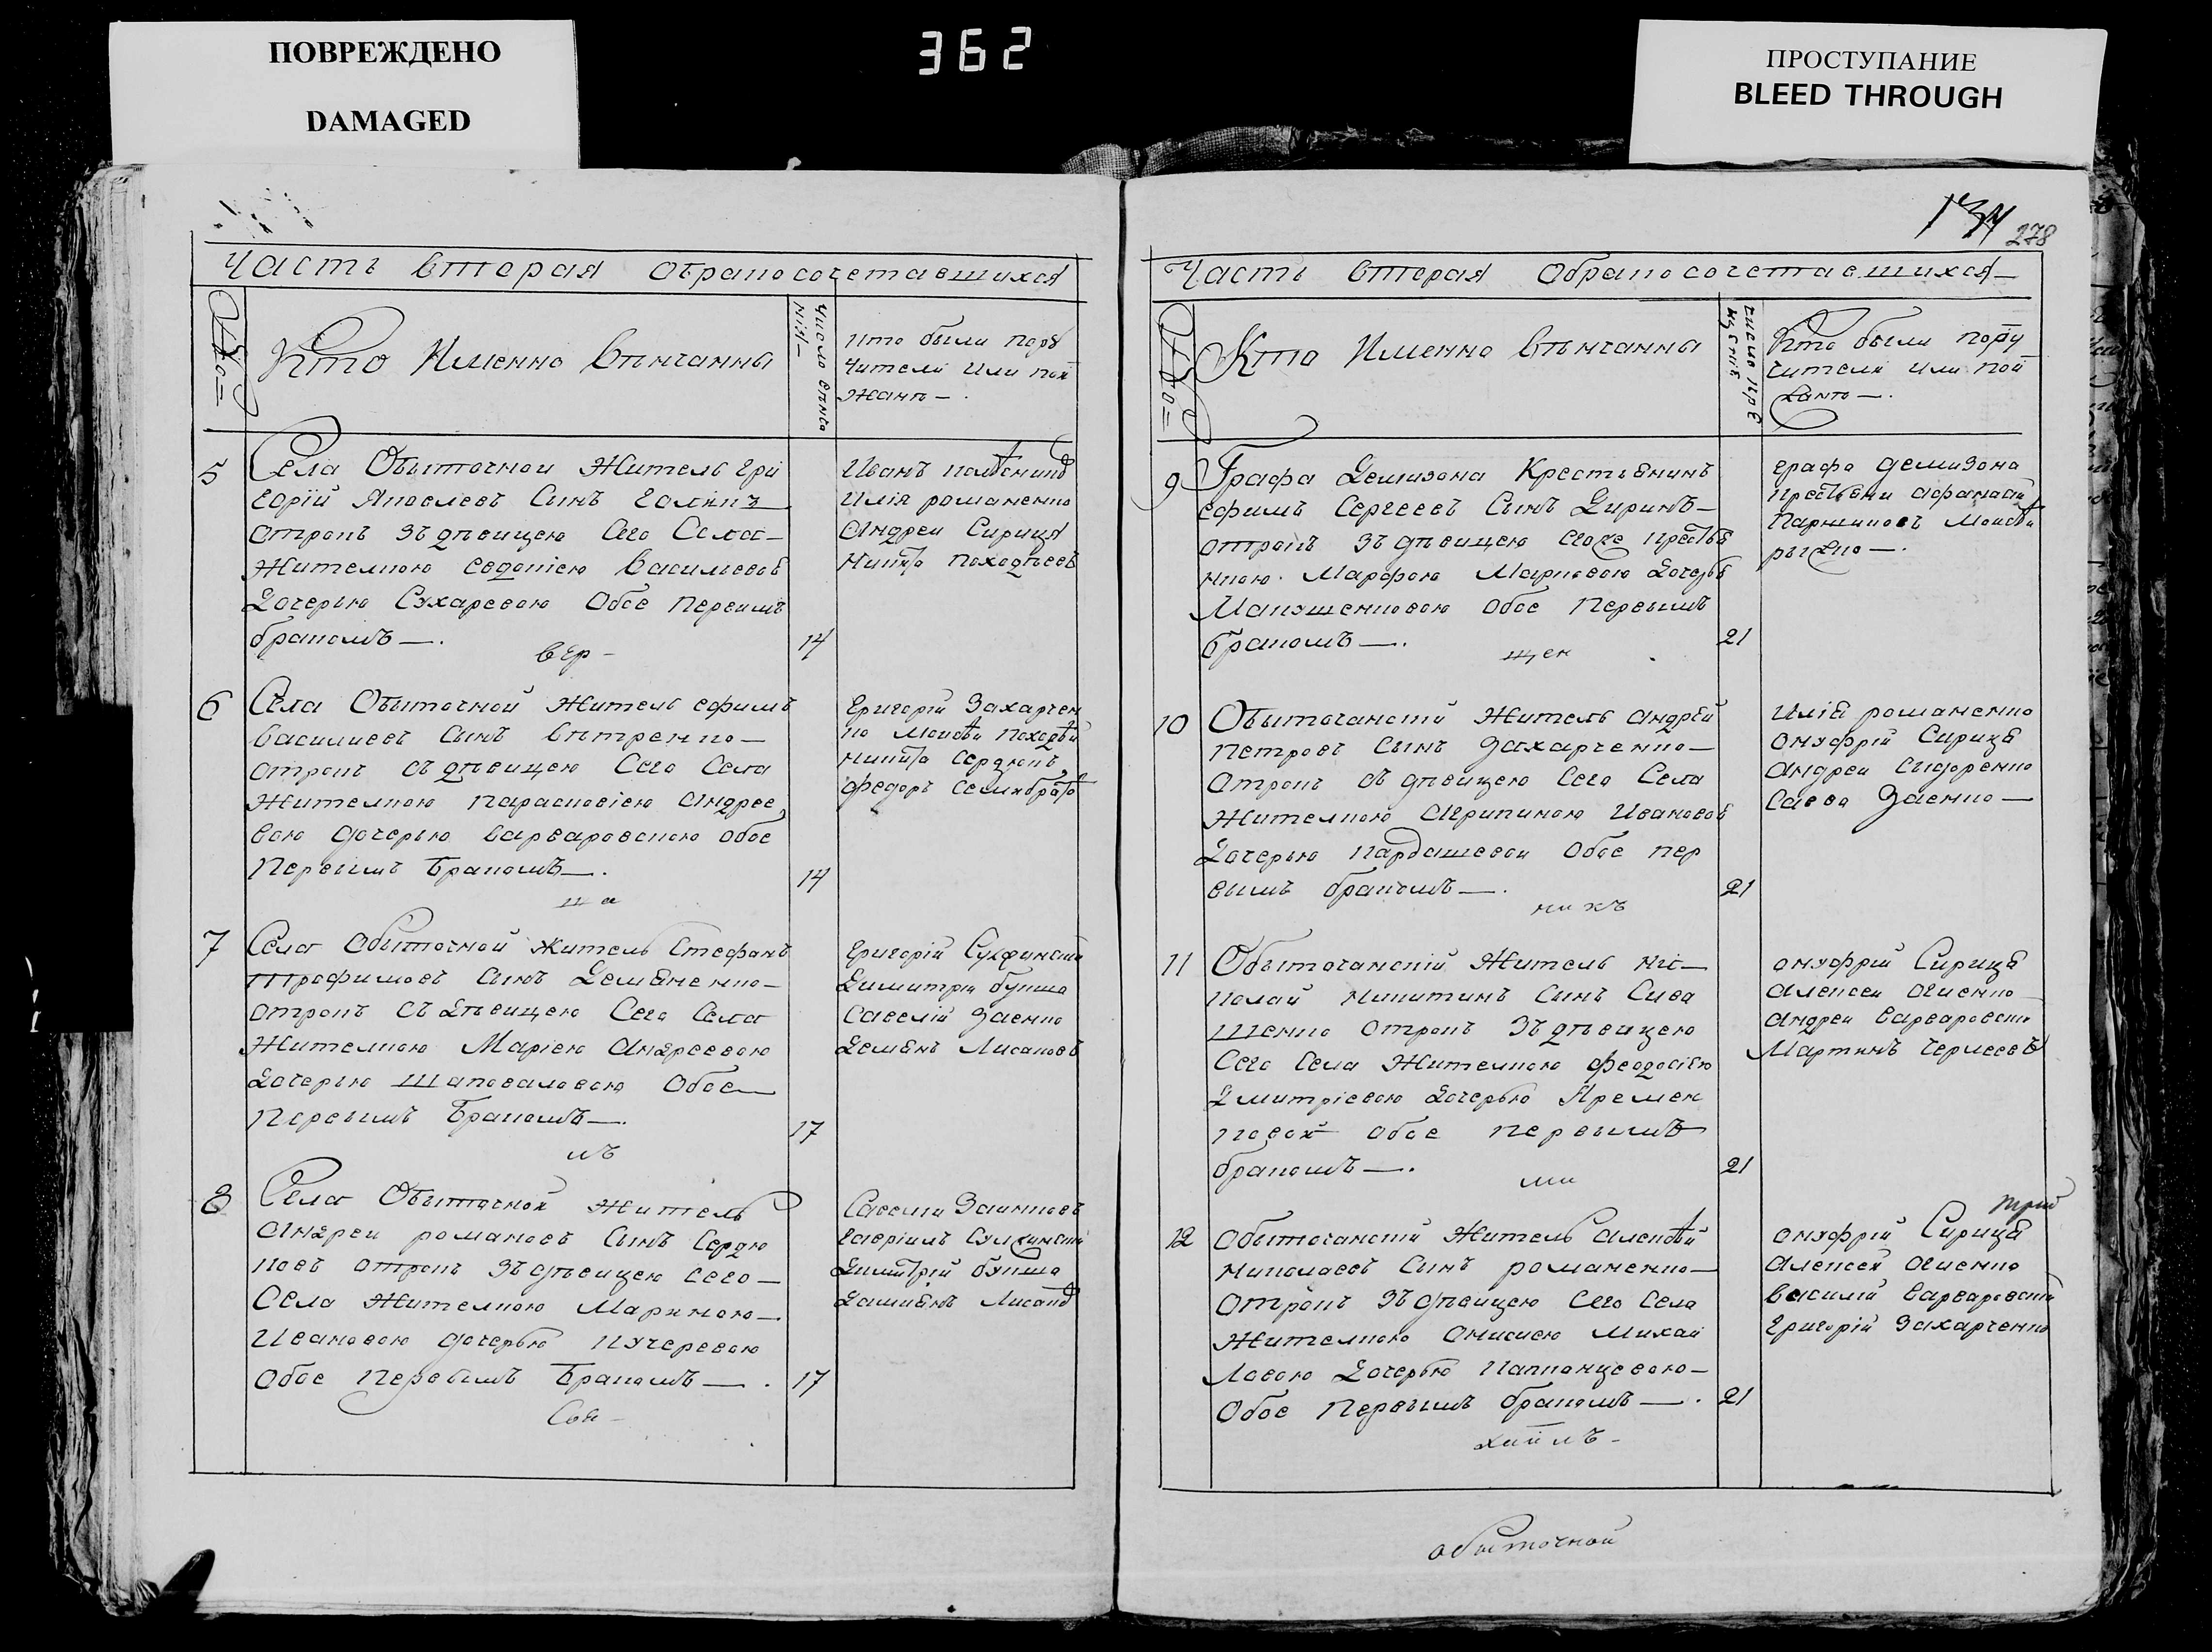 ПОВРЕЖДЕНО
DAMAGED
362
ПРОСТУПАНИЕ
BLEED THROUGH
Часть вторая обракосочетавшихся
Кто Именно Венчанны
Число венча
ній
Кто были пору
чители или поѣ
жанъ
5
Села Обыточной Житель Гри
горій Яковлевъ Сынъ
отрокъ зъ дѣвицею Сего Села
Жителкою Евдокіею Василевой
Дочерью Сухаревою Обое первимъ
бракомъ
14
вер
Иванъ
Илія романенко
Андрей Сирица
Никита Походѣевъ
6
Села Обыточной Житель ефимъ
Василиевъ Сынъ Витренко
отрокъ съ дѣвицею Сего Села
Жителкою Парасковіею Андрее
вою дочерью варваровскою обое
Первимъ Бракомъ
14
ша
Григорій Захарчен
ко Моисѣй Походѣй
Никита Сердюкъ
Федоръ Семибрато
7
Села Обыточной житель Стефанъ
Трофимовъ Сынъ Демяненко
отрокъ съ дѣвицею Сего Села
Жителкою Маріею Андреевою
Дочерью Шаповаловою Обое
Первимъ Бракомъ
17
лъ
Григорій
Димитрій букша
Савелій Заенко
Демянъ Лисаковъ
8
Села Обыточной житель
Андреи романовъ Сынъ Сердю
ковъ отрокъ зъ дѣвицею Сего
Села Жителкою Мариною
Ивановою дочерью Кучеревою
Обое Первымъ Бракомъ
17
Савелій Заинковъ
Гавріилъ
Димитрій букша
Дамиянъ Лисако
134
278
Часть вторая Обракосочетавшихся
Кто Именно Венчанны
Кто были пору
чители или поѣ
жанъ
9
Графа Демизона Крестьянинъ
ефимъ Сергеевъ Сынъ
отрокъ зъ дѣвицею егоже крестья
нкою Марфою Марковою Дочерью
Обое Первымъ
Бракомъ
21
щен
графа демизона
крестьяни афанасій
Моисѣй
10
Обыточанскій Житель андрей
петровъ Сынъ Захарченко
отрокъ съ дѣвицею Сего Села
Жителкою Агрипиною Ивановой
Дочерью Кардашевой Обое пер
вымъ бракомъ
21
никъ
Илія романенко
онуфрій Сирица
андреи Сидоренко
Савва Заенко
11
Обыточанскій Житель ни
колай Никитинъ Сынъ Сива
шенко отрокъ зъ дѣвицею
Сего Села Жителкою феодосіею
Дмитріевою Дочерью Яремен
ковой обое первымъ
бракомъ
21
ми
онуфрій Сирица
алексеи
андреи варваровски
Мартинъ
12
Обыточанскій Житель алексѣй
Николаевъ Сынъ романенко
отрокъ зъ дѣвицею Сего Села
Жителкою Михай
ловою Дочерью
Обое Первымъ бракомъ
21
хаилъ
трій
онуфрій Сирица
Алексей
василій варваровскій
Григорій Захарченко
обыточной